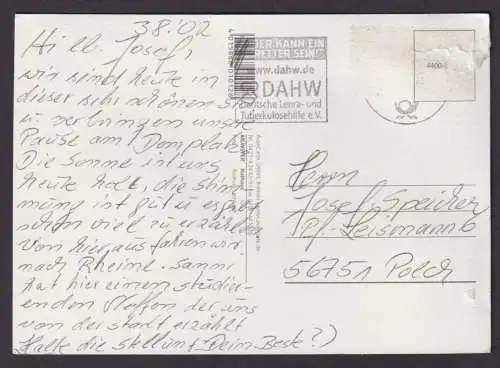 38:02
Hi lb. Josef,
wir sind heute in
dieser sehr schönen
u. verbringen unsre
Pause am Domplatz
Die Sonne ist uns
heute hold, die Stim
mung ist gut u es gibt
schon viel zu erzählen
Von hier aus fahren wir
nach Rheine. Sammi
hat hier einen studier-
enden Neffen der uns
von der Stadt erzählt
Halte die Stellung Deim Beste?)
JEDER KANN EIN
RETTER SEIN!
www.dahw.de
DAHW
Deutsche Lepra- und
Tuberkulosehilfe e.V.
4400-1
Herrn
Josef Speicher
Pf.-Leismann 6
56751 Polch